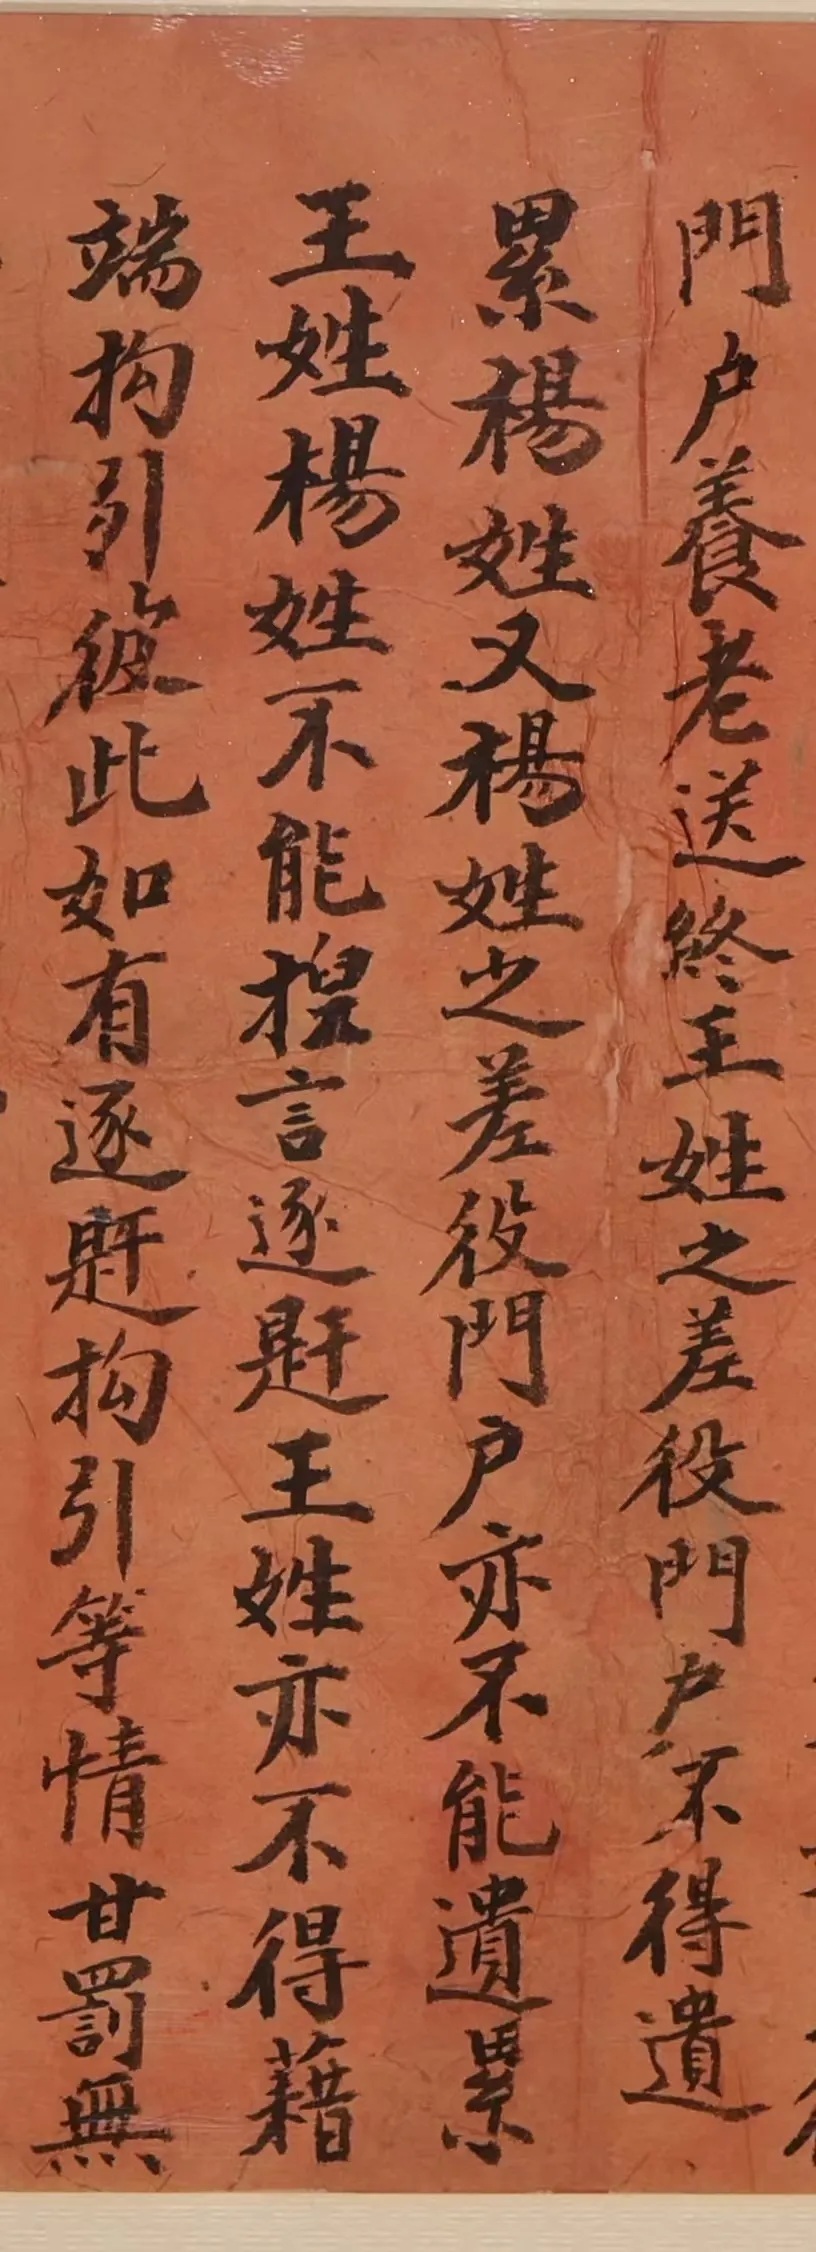 門户養老送終王姓之差役門户不得遺
累楊姓又楊姓之差役門户亦不能遺累
王姓楊姓不能捏言逐逛王姓亦不得藉
端抅引彼此如有逐逛抅引等情甘罰無